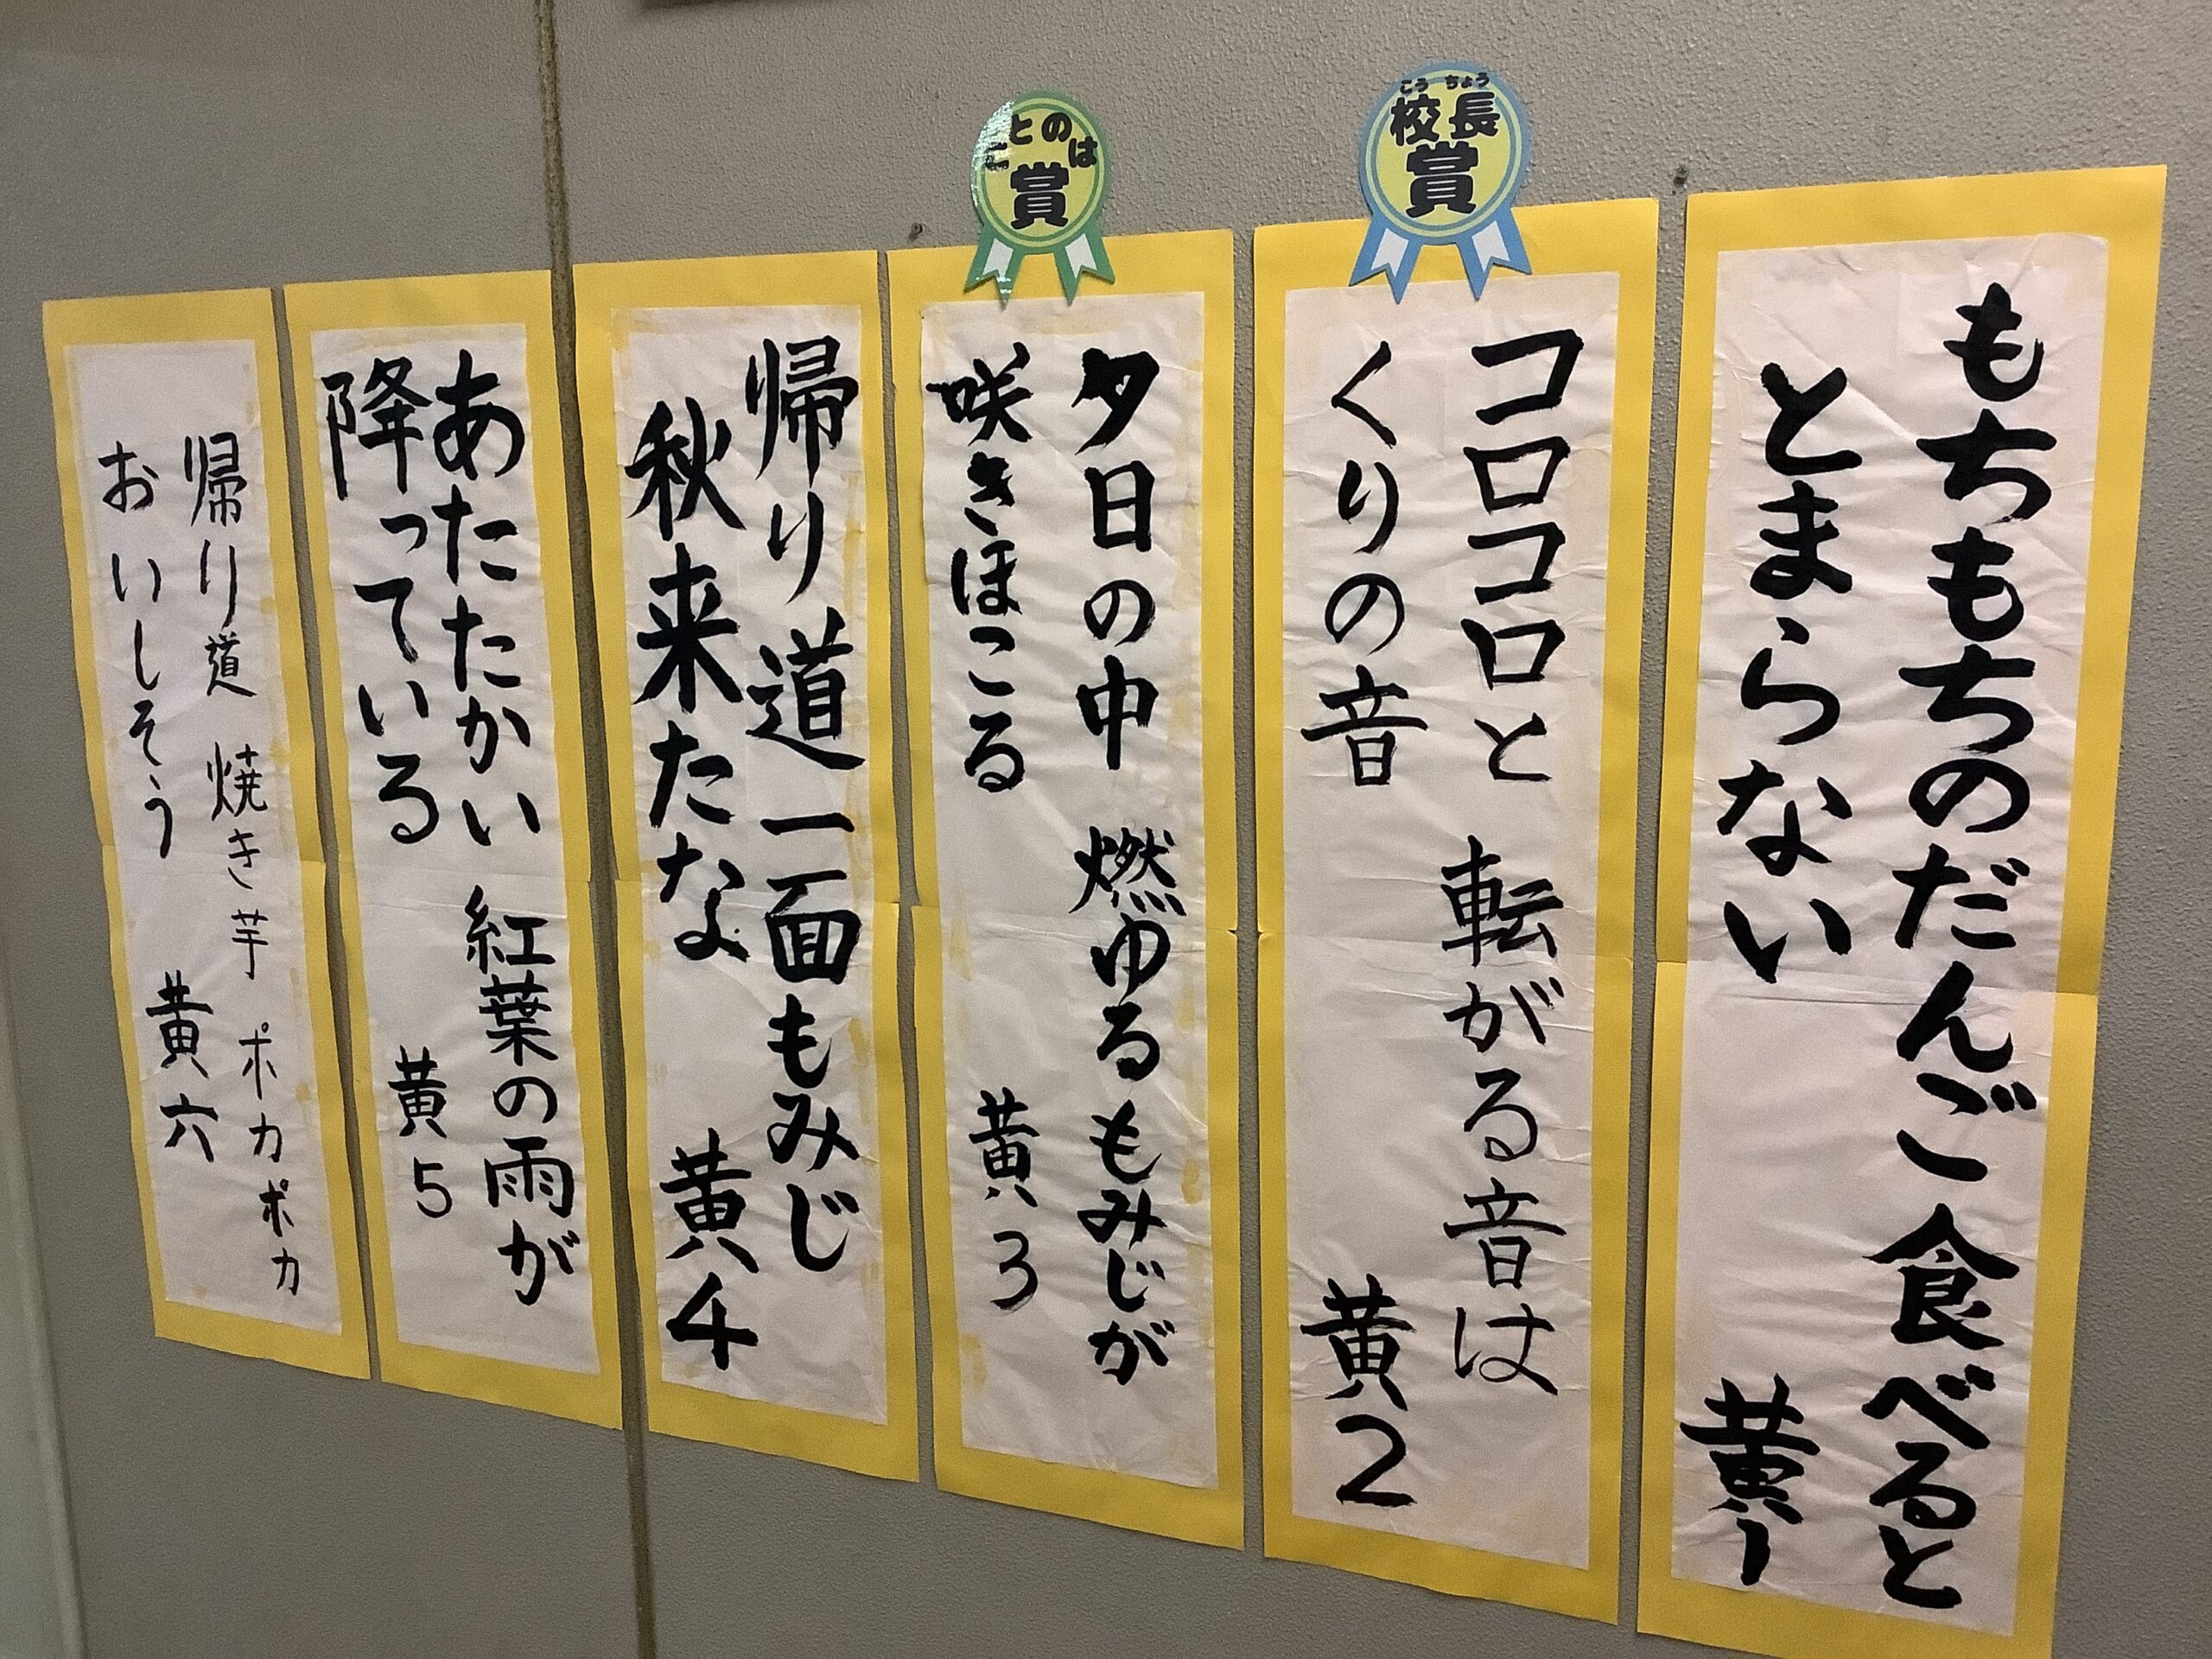 もちもちのだんご食べると
とまらない
黄1
こうちょう
校長
賞
コロコロと 転がる音は
くりの音
黄2
ことのは
賞
夕日の中 燃ゆるもみじが
咲きほこる
黄3
帰り道一面もみじ
秋来たな
黄4
あたたかい 紅葉の雨が
降っている
黄5
帰り道 焼き芋 ポカポカ
おいしそう
黄六